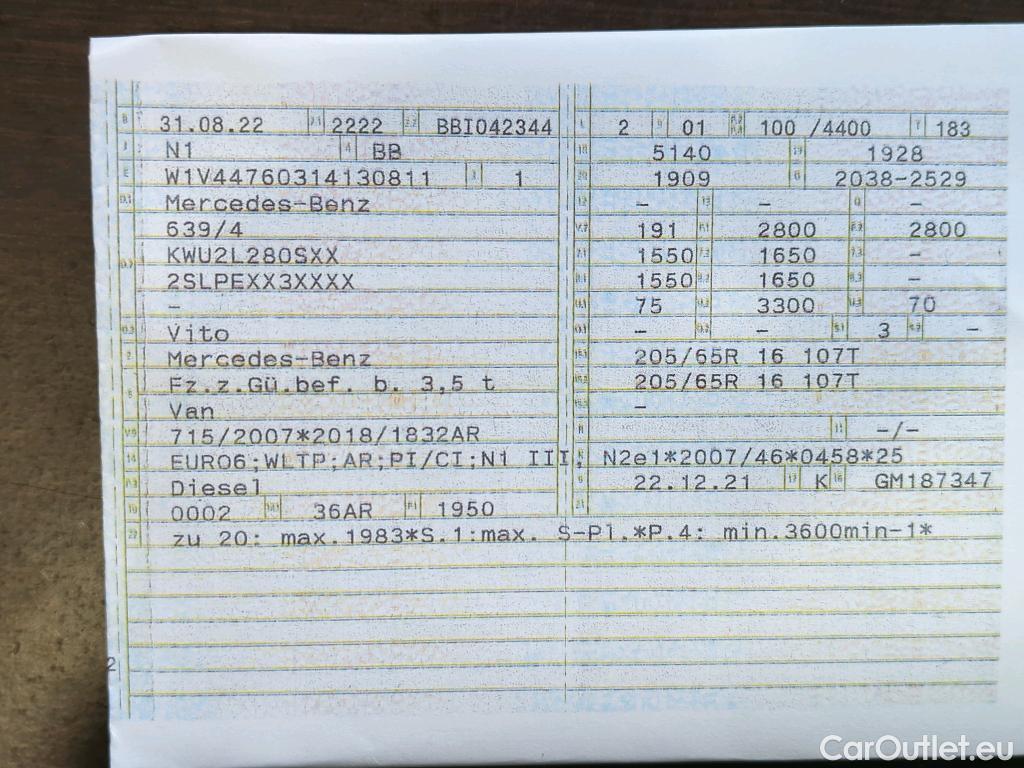 B 31.08.22 2.1 2222 2.2 BBI042344 L 2 9 01 P.2 P.4 100 /4400 T 183
J N1 4 BB 18 5140 19 1928
E W1V44760314130811 3 1 20 1909 G 2038-2529
D.1 Mercedes-Benz 12 - 13 - Q -
639/4 V.7 191 F.1 2800 F.2 2800
D.2 KWU2L280SXX 7.1 1550 7.2 1650 7.3 -
2SLPEXX3XXXX 8.1 1550 8.2 1650 8.3 -
- U.1 75 U.2 3300 U.3 70
D.3 Vito O.1 - O.2 - S.1 3 S.2 -
2 Mercedes-Benz 15.1 205/65R 16 107T
5 Fz.z.Gü.bef. b. 3,5 t 15.2 205/65R 16 107T
Van 15.3 -
V.9 715/2007*2018/1832AR R 11 -/-
14 EURO6;WLTP;AR;PI/CI;N1 III; K N2e1*2007/46*0458*25
P.3 Diesel 6 22.12.21 17 K 16 GM187347
10 0002 14.1 36AR P.1 1950 21
22 zu 20: max.1983*S.1:max. S-Pl.*P.4: min.3600min-1*
2
CarOutlet.eu